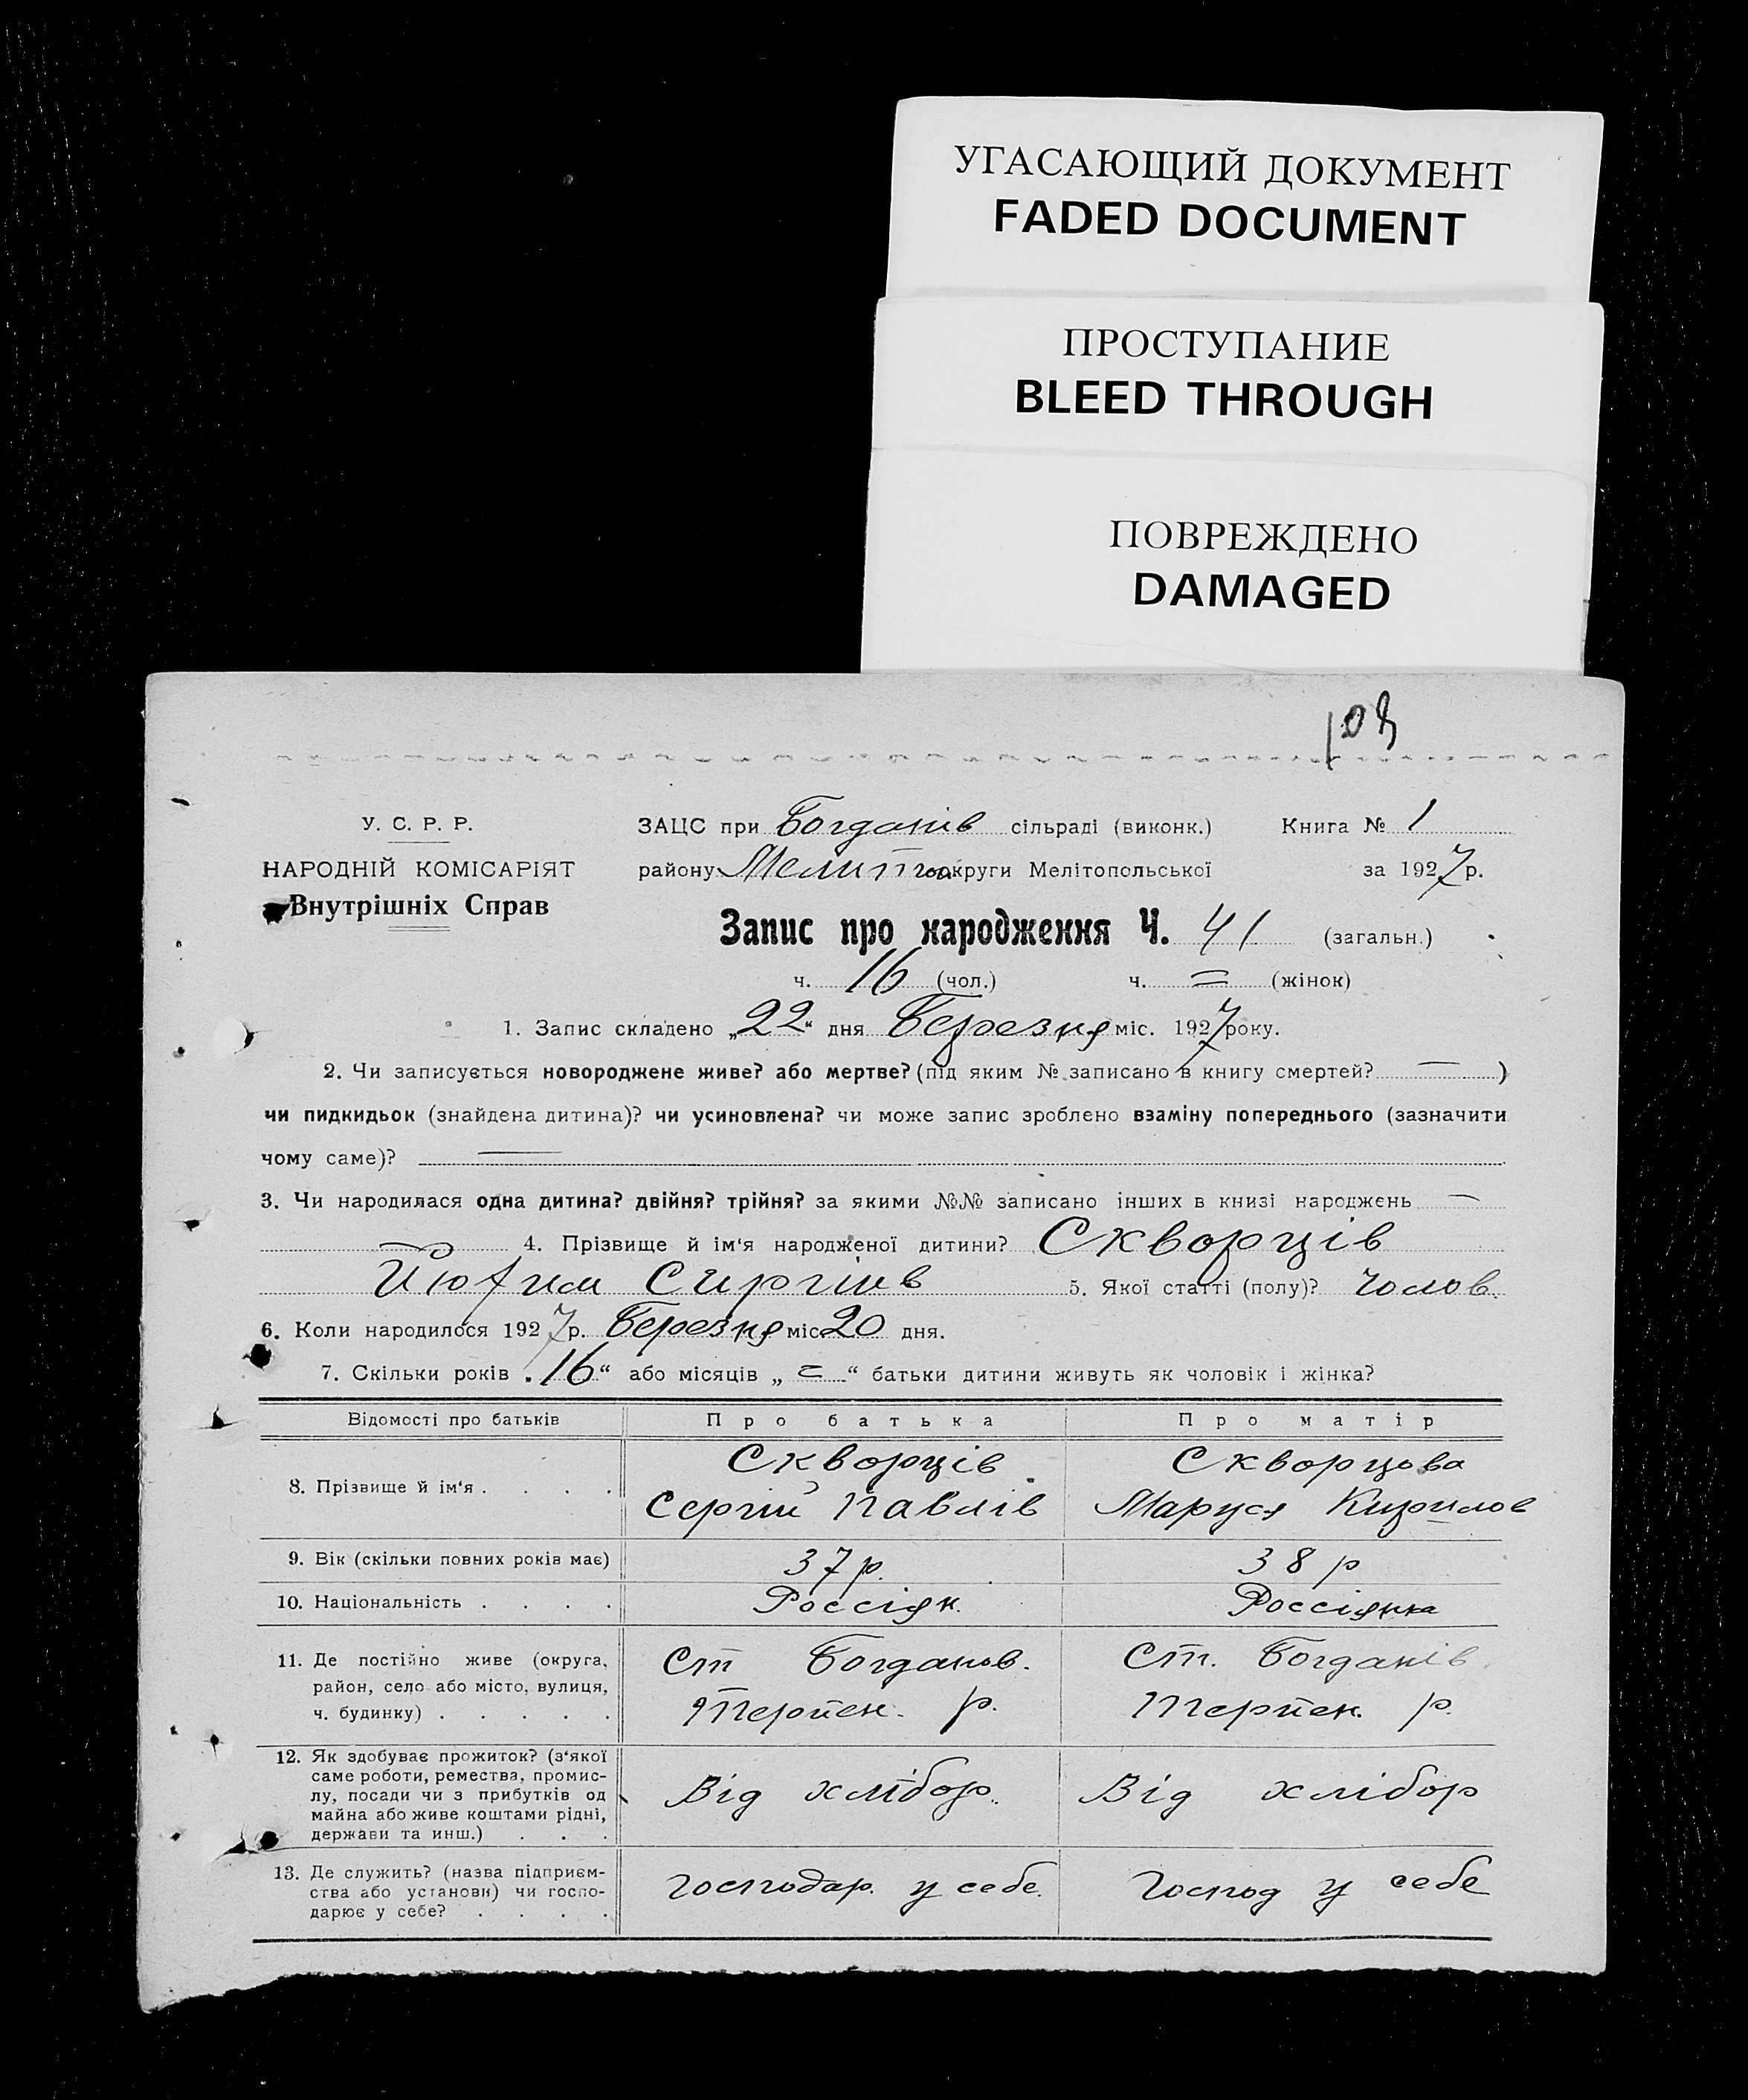 УГАСАЮЩИЙ ДОКУМЕНТ
FADED DOCUMENT
ПРОСТУПАНИЕ
BLEED THROUGH
ПОВРЕЖДЕНО
DAMAGED
У. С. Р. Р.
НАРОДНІЙ КОМІСАРІЯТ
Внутрішніх Справ
ЗАЦС при Богданів сільраді (виконк.) Книга № 1
району Мелітпо округи Мелітопольської за 1927 р.
Запис про народження Ч. 41 (загальн.)
ч. 16 (чол.) ч. = (жінок)
1. Запис складено „22“ дня Березня міс. 1927 року.
2. Чи записується новороджене живе? або мертве? (під яким № записано в книгу смертей? — )
чи пидкидьок (знайдена дитина)? чи усиновлена? чи може запис зроблено взаміну попереднього (зазначити
чому саме)? —
3. Чи народилася одна дитина? двійня? трійня? за якими №№ записано інших в книзі народжень —
4. Прізвище й ім‘я народженої дитини? Скворців
Сиргіів 5. Якої статті (полу)? чолов.
6. Коли народилося 1927 р. Березня міс 20 дня.
7. Скільки років „16“ або місяців „ = “ батьки дитини живуть як чоловік і жінка?
Відомості про батьків Про батька Про матір
8. Прізвище й ім‘я . . . . Скворців Скворцова
Сергій Павлів Маруся Кирилов
9. Вік (скільки повних років має) 37 р. 38 р
10. Національність . . . . Россіян. Россіянка
11. Де постійно живе (округа, Ст Богданов. Ст. Богданів
район, село або місто, вулиця,
ч. будинку) . . . . . Терпен. р. Терпен. р.
12. Як здобуває прожиток? (з‘якої
саме роботи, ремества, промис-
лу, посади чи з прибутків од Від хлібор. Від хлібор
майна або живе коштами рідні,
держави та инш.) . . .
13. Де служить? (назва підприєм-
ства або установи) чи госпо- Господар. у себе. Господ у себе
дарює у себе? . . . .